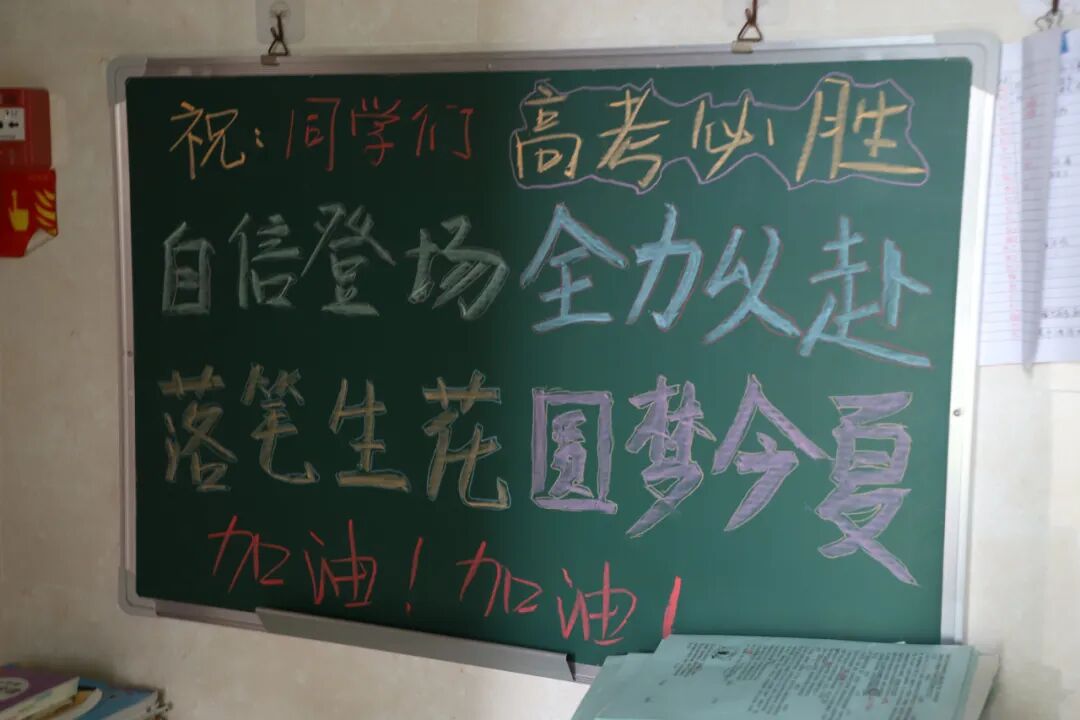 祝:同学们 高考必胜
自信登场 全力以赴
落笔生花 圆梦今夏
加油!加油!